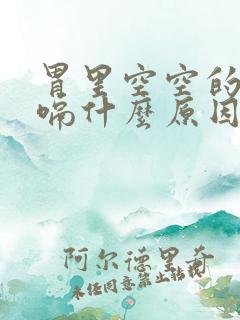 胃里空空的
喘什麼原因
阿尔德里奇
未经同意禁止转载